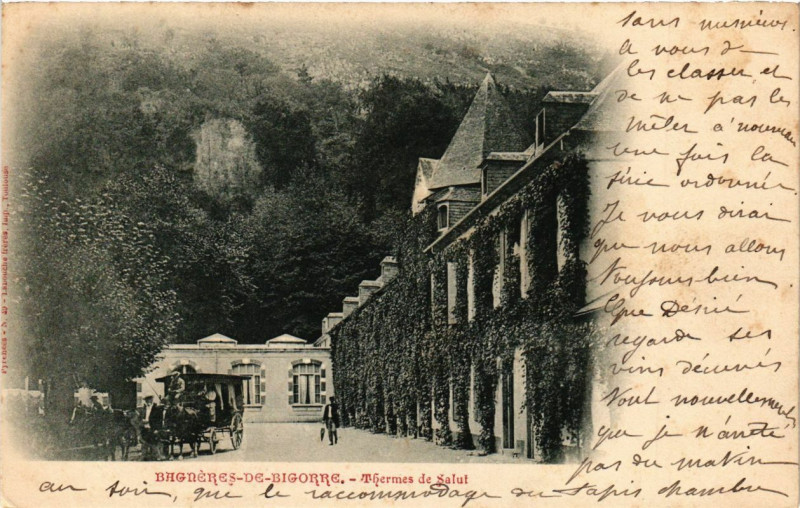 sans mission.
à vous de
les classer, et
de ne pas les
mêler à nouveau
une fois la
série ordonnée
Je vous dirai
que nous allons
Toujours bien
Que Désiré
regarde ses
vins
Tout nouvellement
que je n'arrête
pas du matin
au soir, que le raccommodage du tapis chambre
BAGNÈRES-DE-BIGORRE. - Thermes de Salut
Pyrénées - N. 49 - Labouche frères, Imp., Toulouse